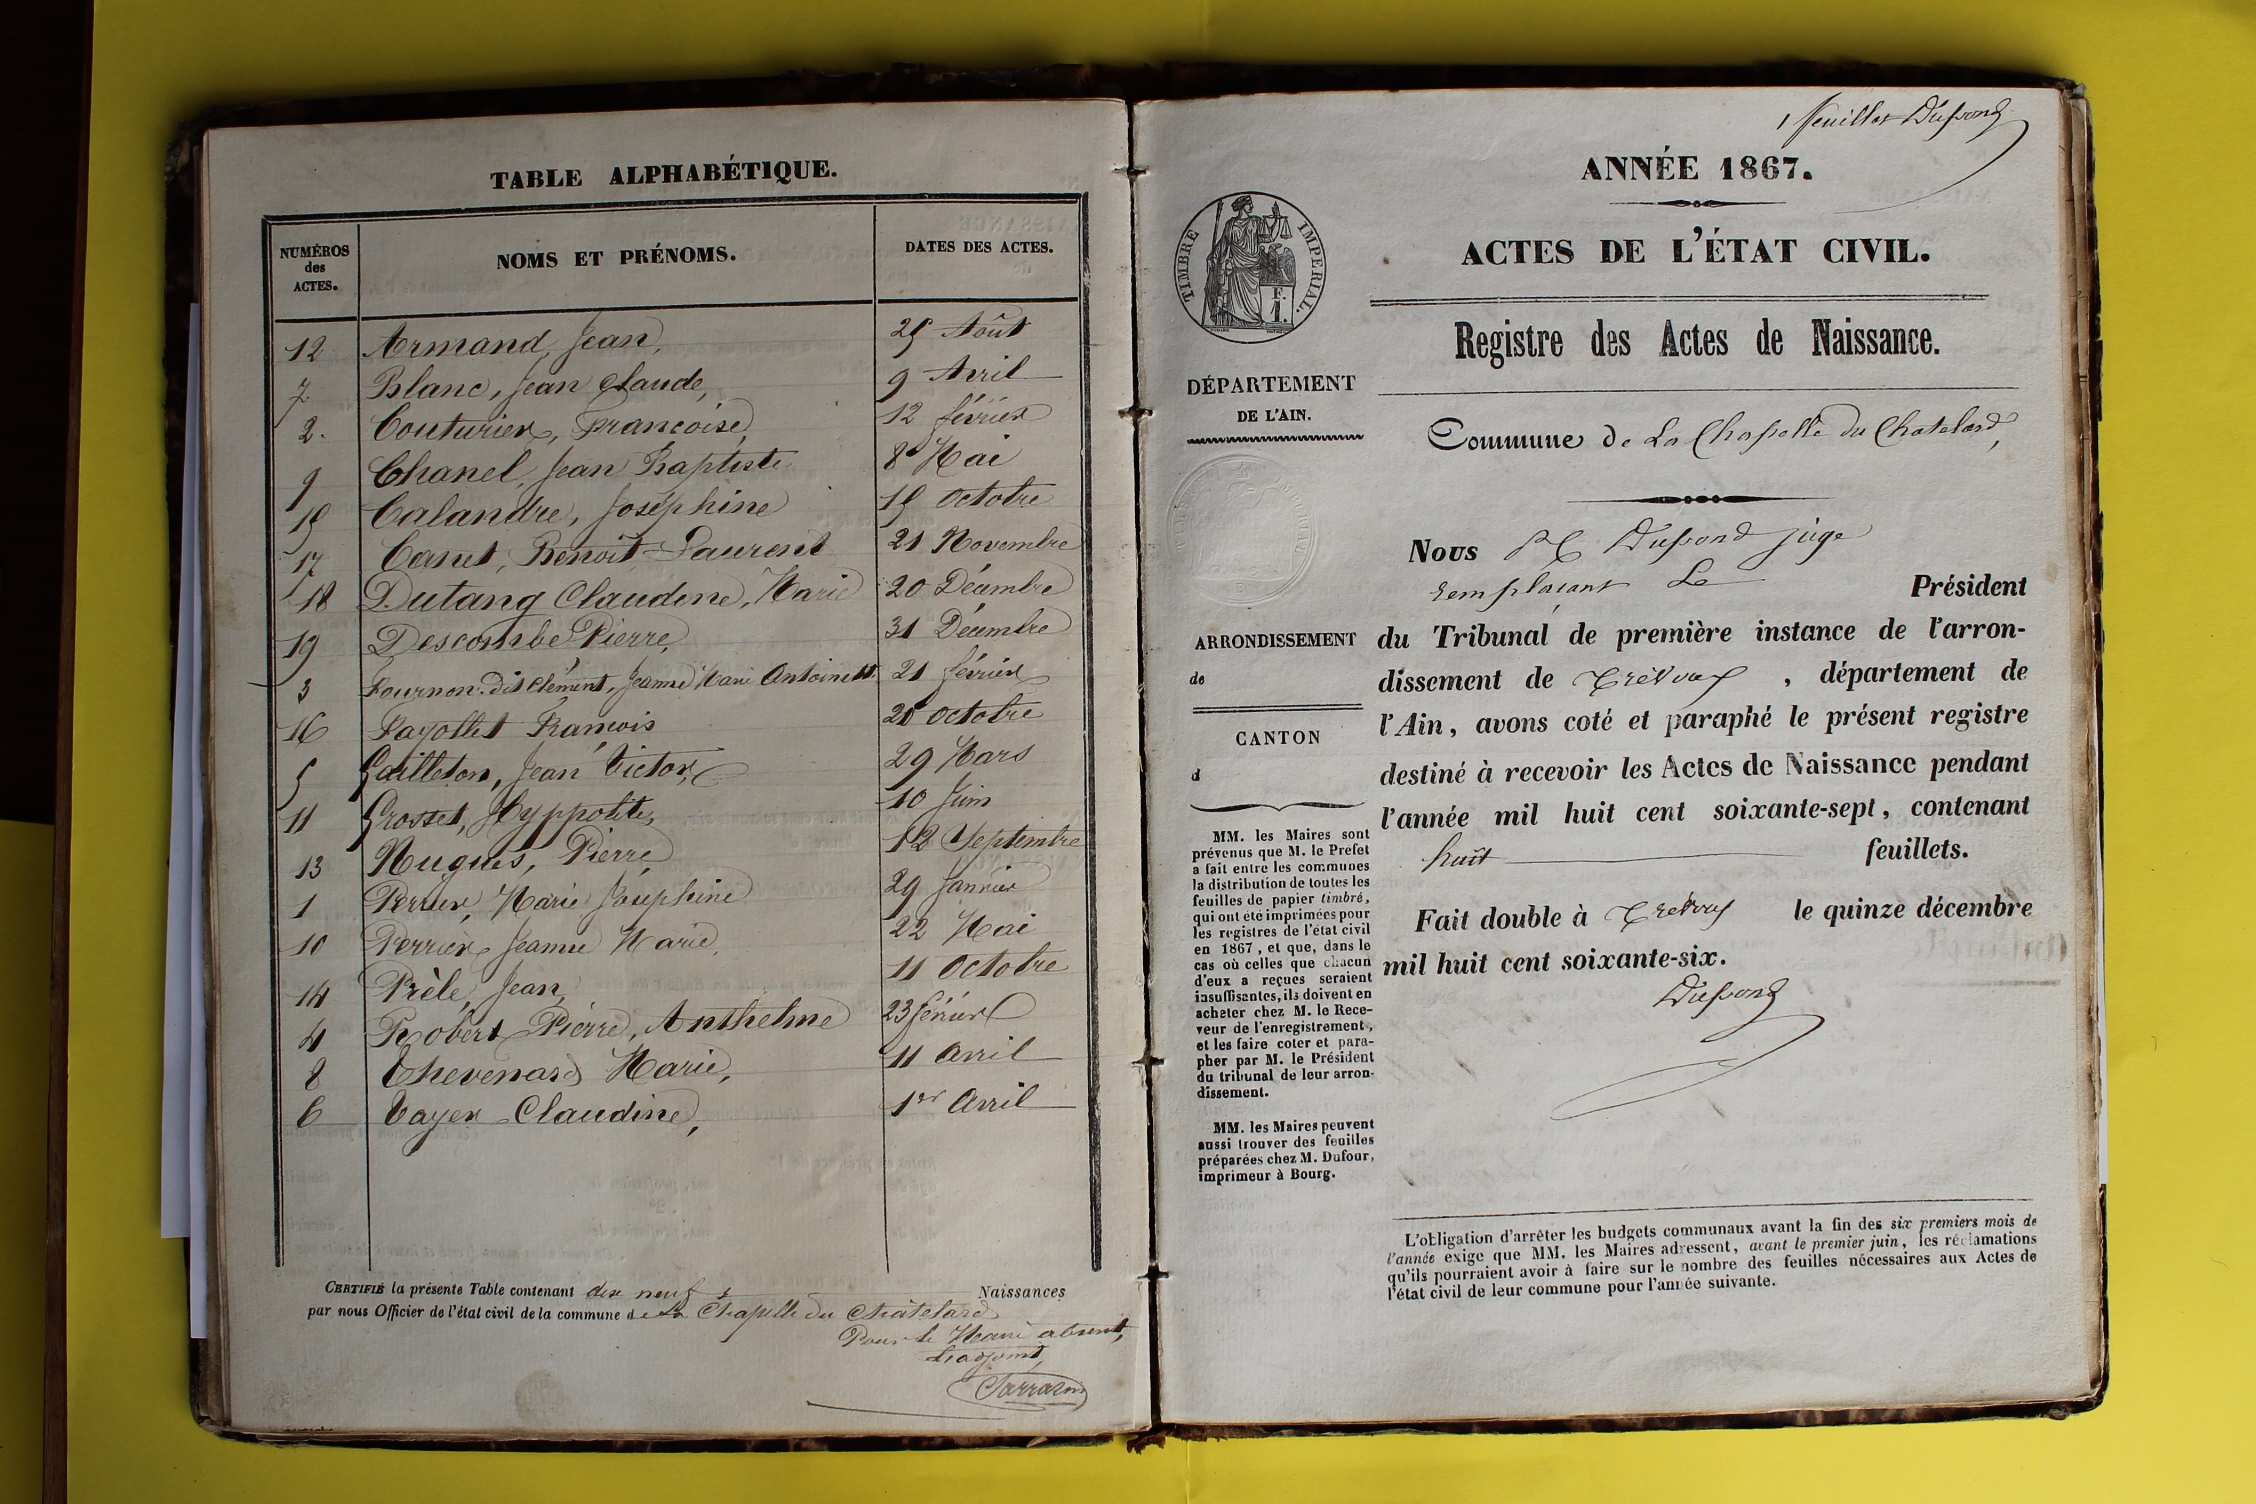 TABLE ALPHABÉTIQUE.
NUMÉROS des ACTES. NOMS ET PRÉNOMS. DATES DES ACTES.
12 Armand, Jean, 25 Août
7 Blanc, Jean Claude, 9 Avril
2. Couturier, Françoise, 12 février
9 Chanel, Jean Baptiste 8 Mai
15 Calandre, Joséphine 15 Octobre
17 Canet, Benoît Laurent 21 Novembre
18 Dutang Claudine, Marie 20 Décembre
19 Descombe Pierre, 31 Décembre
3 Fournon dit Clément, Jeanne Marie Antoinette 21 février
16 Fayollet François 20 octobre
5 Gailleton, Jean Victor, 29 Mars
11 Grosset, Hyppolite, 10 Juin
13 Nugues, Pierre, 12 Septembre
1 Perrier, Marie Joséphine 29 Janvier
10 Perrier Jeanne Marie, 22 Mai
14 Prèle, Jean, 11 Octobre
4 Robert Pierre, Anthelme 23 février
8 Thevenard Marie, 11 Avril
6 Vayer Claudine, 1er Avril
CERTIFIÉ la présente Table contenant dix neuf Naissances
par nous Officier de l'état civil de la commune de La Chapelle du Châtelard
Pour le Maire absent,
L'adjoint,
Sarrazin
1 feuillet Dufsond
ANNÉE 1867.
ACTES DE L'ÉTAT CIVIL.
Registre des Actes de Naissance.
TIMBRE IMPERIAL.
F.
1.
DÉPARTEMENT
DE L'AIN.
Commune de La Chapelle du Chatelard,
Nous juge
remplaçant Le Président
ARRONDISSEMENT
de
du Tribunal de première instance de l'arron-
dissement de Trévoux, département de
l'Ain, avons coté et paraphé le présent registre
destiné à recevoir les Actes de Naissance pendant
l'année mil huit cent soixante-sept, contenant
huit feuillets.
Fait double à Trévoux le quinze décembre
mil huit cent soixante-six.
CANTON
d
MM. les Maires sont
prévenus que M. le Prefet
a fait entre les communes
la distribution de toutes les
feuilles de papier timbré,
qui ont été imprimées pour
les registres de l'état civil
en 1867, et que, dans le
cas où celles que chacun
d'eux a reçues seraient
insuffisantes, ils doivent en
acheter chez M. le Rece-
veur de l'enregistrement,
et les faire coter et para-
pher par M. le Président
du tribunal de leur arron-
dissement.
MM. les Maires peuvent
aussi trouver des feuilles
préparées chez M. Dufour,
imprimeur à Bourg.
L'obligation d'arrêter les budgets communaux avant la fin des six premiers mois de
l'année exige que MM. les Maires adressent, avant le premier juin, les réclamations
qu'ils pourraient avoir à faire sur le nombre des feuilles nécessaires aux Actes de
l'état civil de leur commune pour l'année suivante.